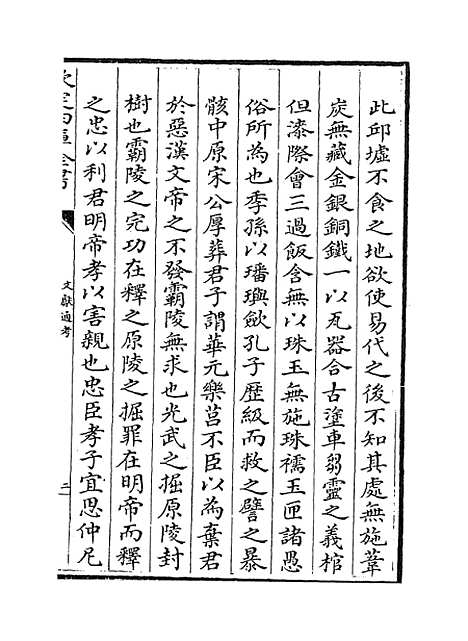 此邱墟不食之地欲使易代之後不知其處無施葦
炭無藏金銀銅鐵一以瓦器合古塗車芻靈之義棺
但漆際會三過飯含無以珠玉無施珠襦玉匣諸愚
俗所為也季孫以璠璵斂孔子歴級而救之譬之暴
骸中原宋公厚葬君子謂華元樂莒不臣以為棄君
於惡漢文帝之不發霸陵無求也光武之掘原陵封
樹也霸陵之完功在釋之原陵之掘罪在明帝而釋
之忠以利君明帝孝以害親也忠臣孝子宜思仲尼
欽定四庫全書
文獻通考
二